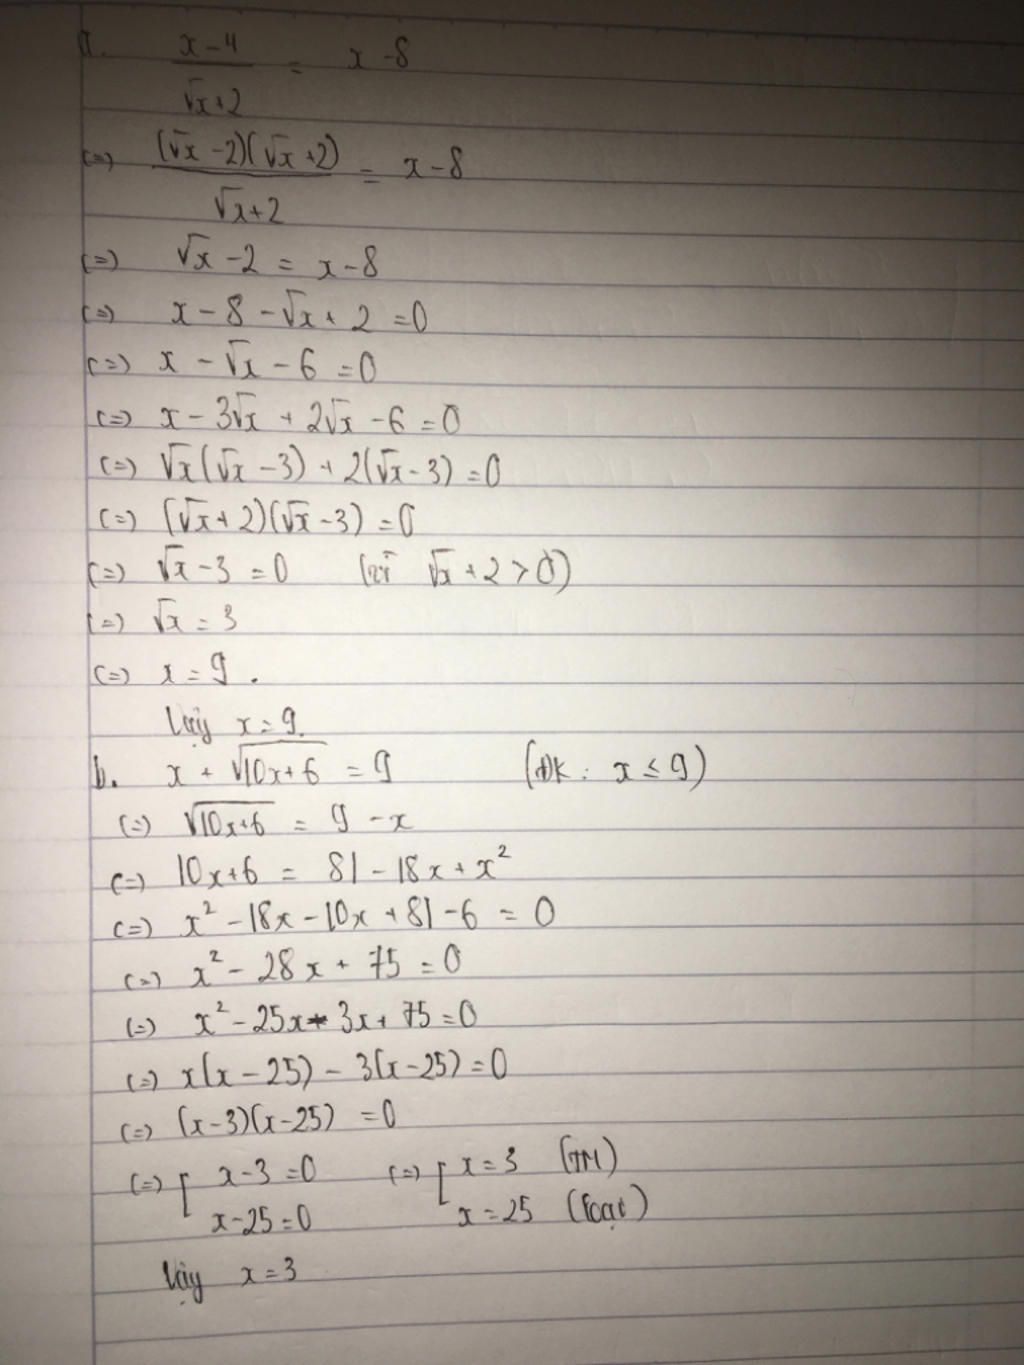 a. x-4 / √x+2 = x-8
(=) (√x-2)(√x+2) / √x+2 = x-8
(=) √x-2 = x-8
(=) x-8-√x+2=0
(=) x-√x-6=0
(=) x-3√x+2√x-6=0
(=) √x(√x-3)+2(√x-3)=0
(=) (√x+2)(√x-3)=0
(=) √x-3=0 (vì √x+2>0)
(=) √x=3
(=) x=9.
Vậy x=9.
b. x+√10x+6=9 (ĐK: x≤9)
(=) √10x+6=9-x
(=) 10x+6=81-18x+x²
(=) x²-18x-10x+81-6=0
(=) x²-28x+75=0
(=) x²-25x-3x+75=0
(=) x(x-25)-3(x-25)=0
(=) (x-3)(x-25)=0
(=) [ x-3=0 (=) [ x=3 (TM)
x-25=0 x=25 (loại)
Vậy x=3